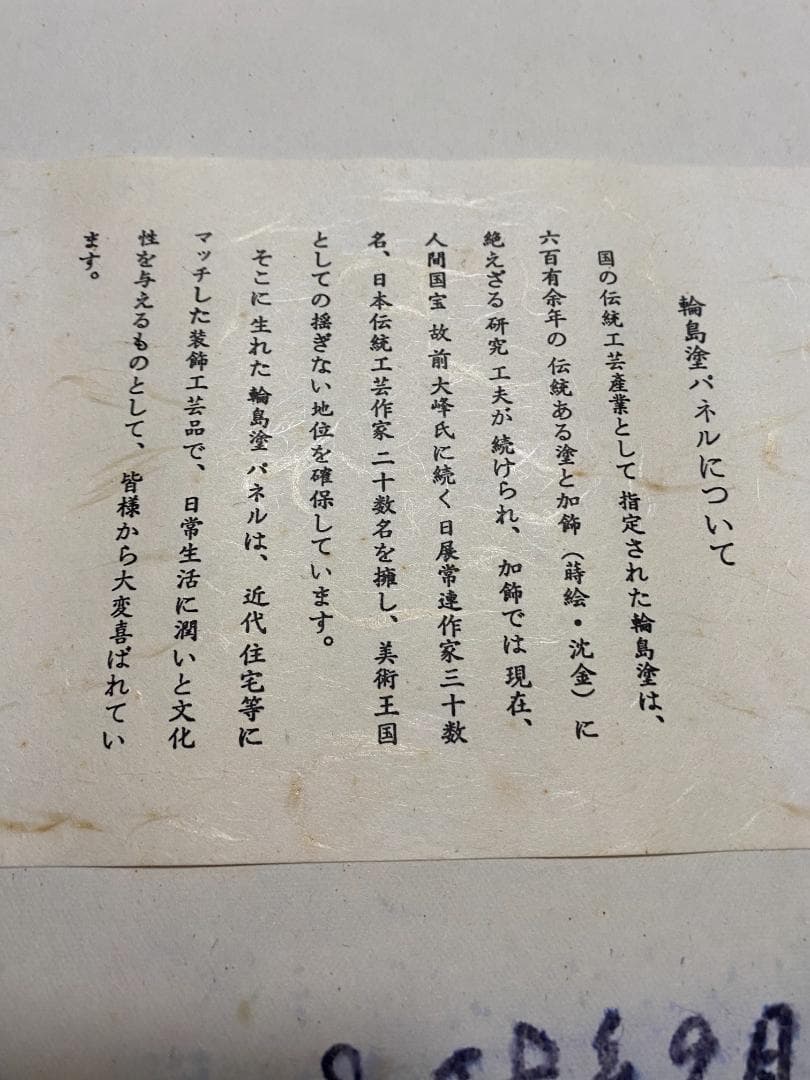 輪島塗パネルについて
国の伝統工芸産業として指定された輪島塗は、
六百有余年の伝統ある塗と加飾（蒔絵・沈金）に
絶えざる研究工夫が続けられ、加飾では現在、
人間国宝 故前大峰氏に続く日展常連作家三十数
名、日本伝統工芸作家二十数名を擁し、美術王国
としての揺ぎない地位を確保しています。
そこに生れた輪島塗パネルは、近代住宅等に
マッチした装飾工芸品で、日常生活に潤いと文化
性を与えるものとして、皆様から大変喜ばれてい
ます。